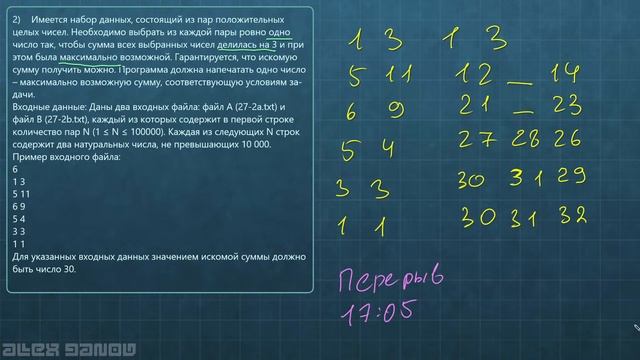 2) Имеется набор данных, состоящий из пар положительных
целых чисел. Необходимо выбрать из каждой пары ровно одно
число так, чтобы сумма всех выбранных чисел делилась на 3 и при
этом была максимально возможной. Гарантируется, что искомую
сумму получить можно. Программа должна напечатать одно число
– максимально возможную сумму, соответствующую условиям за-
дачи.
Входные данные: Даны два входных файла: файл A (27-2a.txt) и
файл B (27-2b.txt), каждый из которых содержит в первой строке
количество пар N (1 ≤ N ≤ 100000). Каждая из следующих N строк
содержит два натуральных числа, не превышающих 10 000.
Пример входного файла:
6
1 3
5 11
6 9
5 4
3 3
1 1
Для указанных входных данных значением искомой суммы должно
быть число 30.
1 3 1 3
5 11 12 _ 14
6 9 21 _ 23
5 4 27 28 26
3 3 30 31 29
1 1 30 31 32
Перерыв
17:05
ALEX DANOV